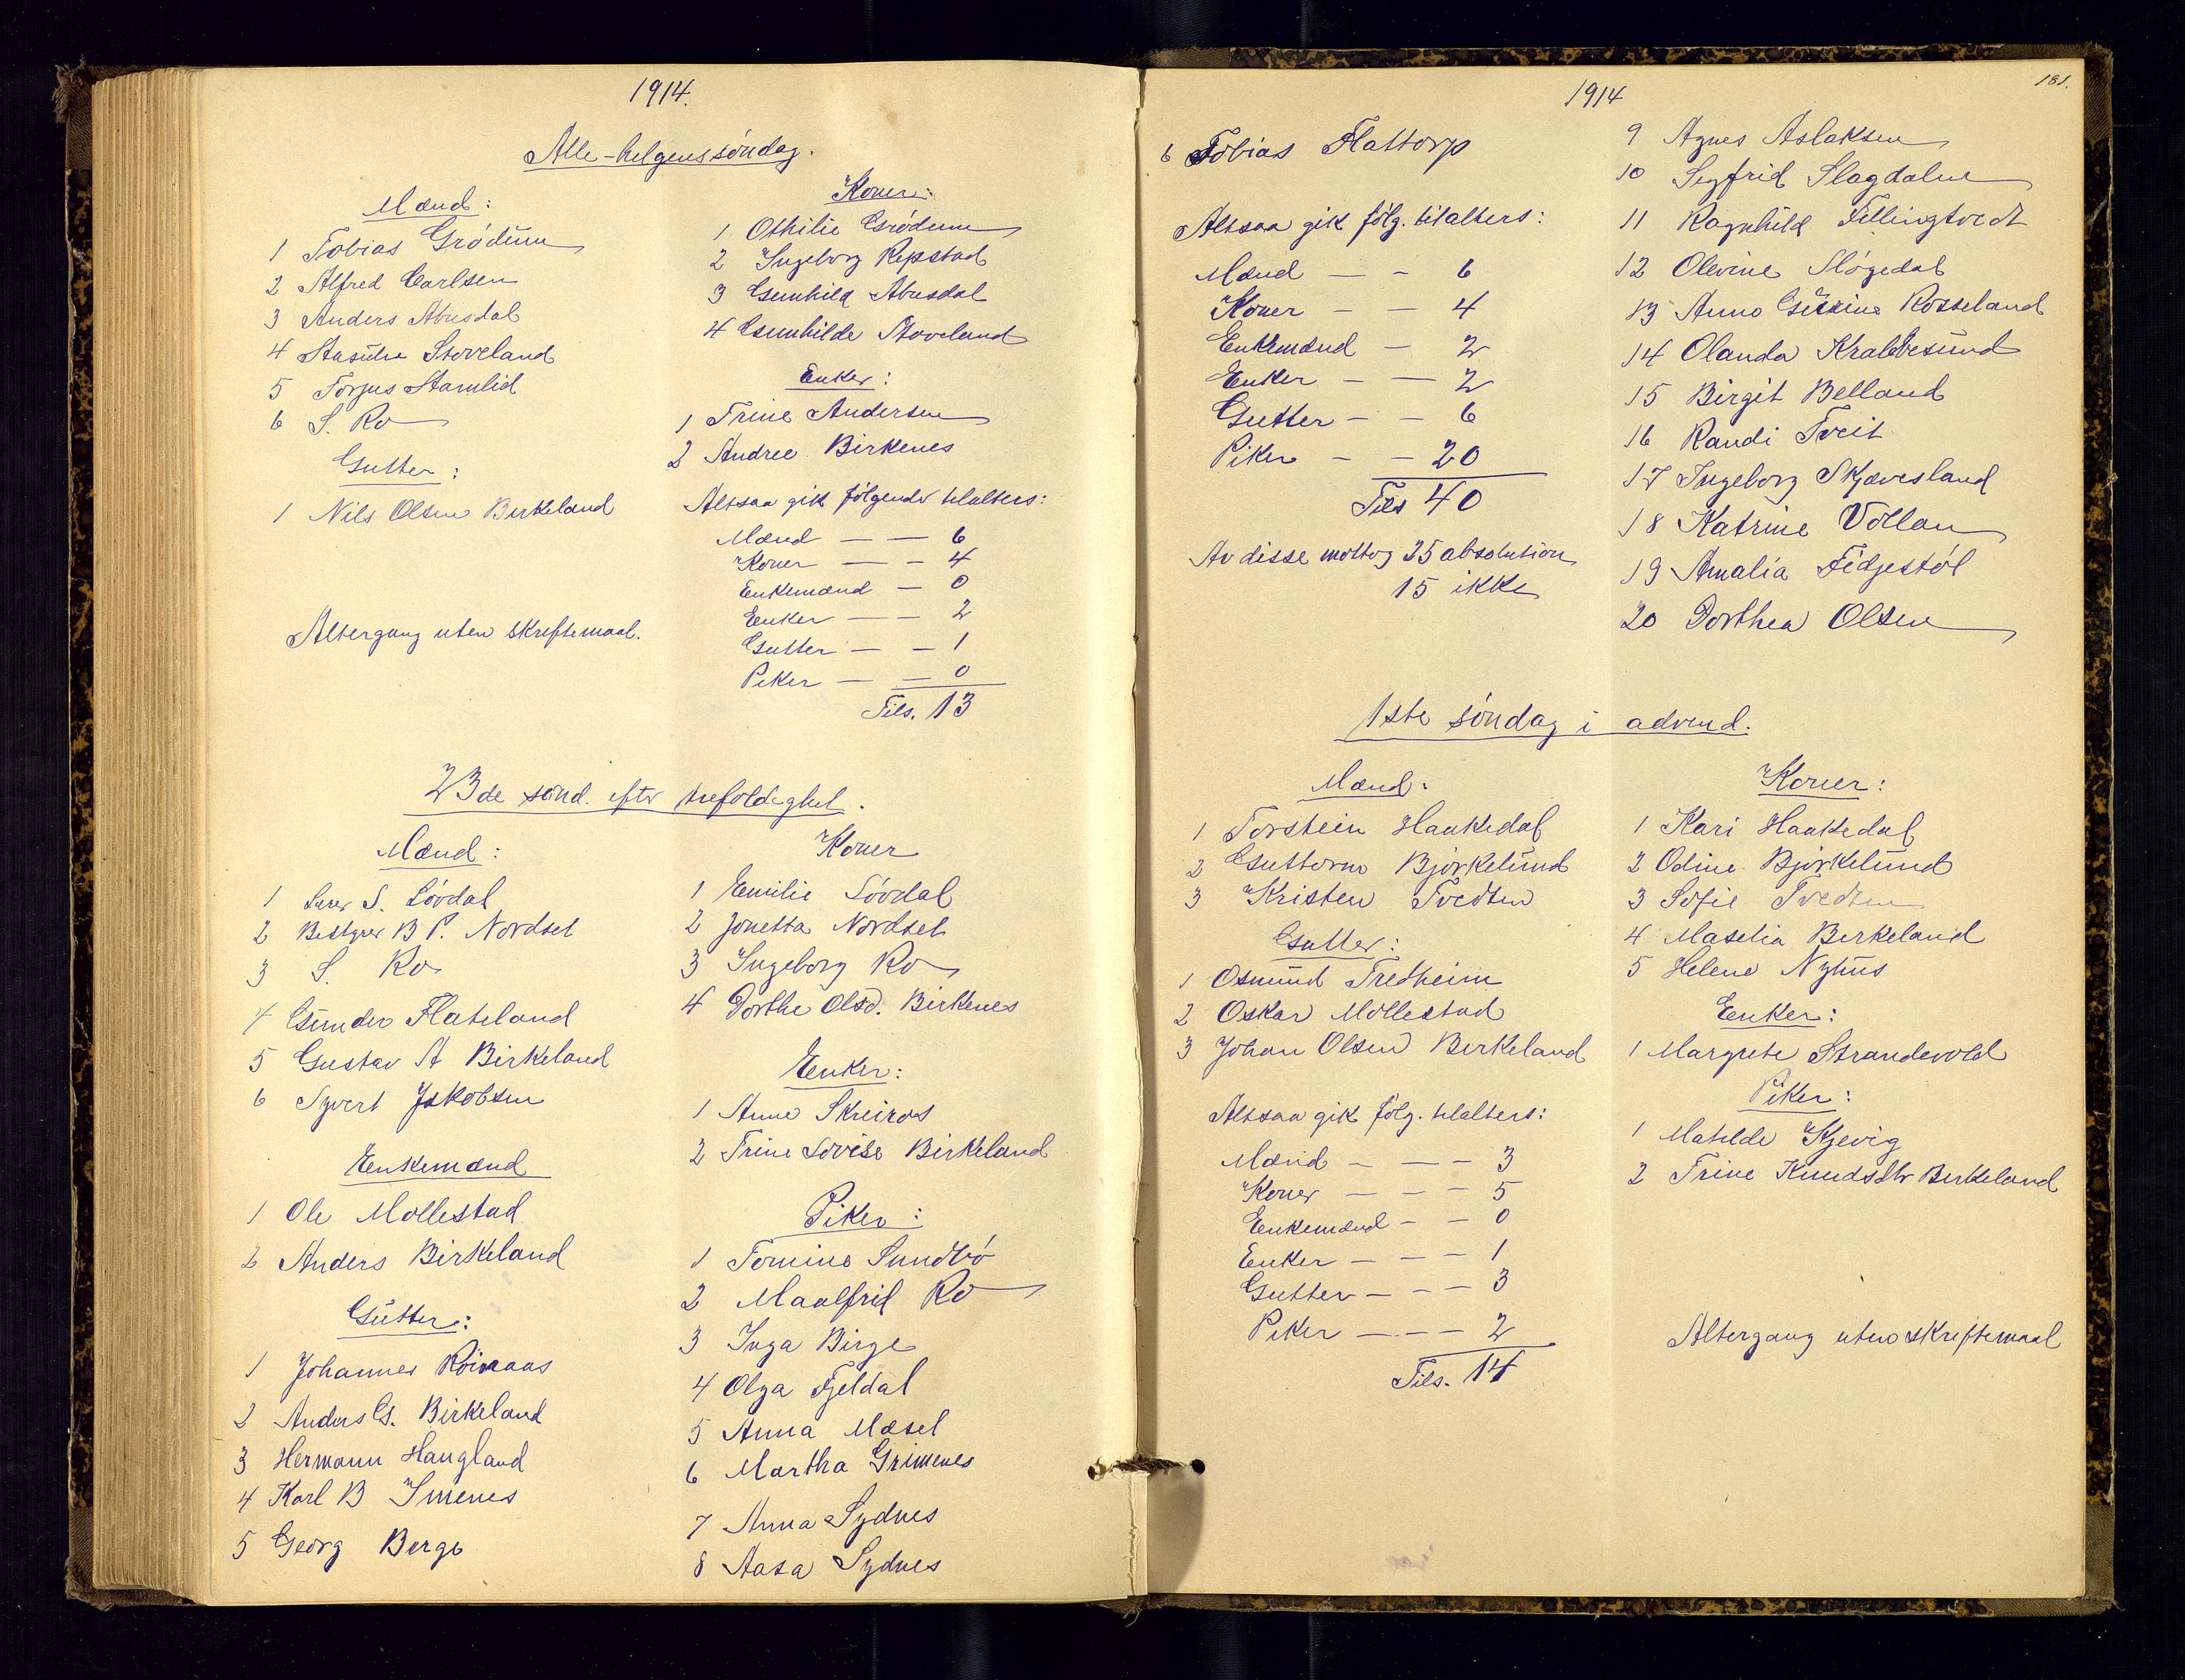 1914.
Alle-helgenssöndag.
Mænd:
1 Tobias Grödum
2 Alfred Carlsen
3 Anders Abusdal
4 Stoveland
5 Torjus Stamlid
6 S. Ro
Gutter:
1 Nils Olsen Birkeland
Altergang uten skriftemaal.
Koner:
1 Othilie Grödum
2 Ingeborg Repstad
3 Gunhild Abusdal
4 Gunhilde Stoveland
Enker:
1 Trine Andersen
2 Andrea Birkenes
Altsaa gik følgende tilalters:
Mænd — — 6
Koner — — 4
Enkemænd — 0
Enker — — 2
Gutter — — 1
Piker — — 0
Tils. 13
23de sønd. efter trefoldighet.
Mænd:
1 Lærer S. Lövdal
2 Bestyrer B P. Nordset
3 S. Ro
4 Gunder Flateland
5 Gustav A Birkeland
6 Syvert Jakobsen
Enkemænd
1 Ole Mollestad
2 Anders Birkeland
Gutter:
1 Johannes Roinaas
2 Anders G. Birkeland
3 Hermann Haugland
4 Karl B Imenes
5 Georg Berge
Koner
1 Emilie Lövdal
2 Jonetta Nordset
3 Ingeborg Ro
4 Dorthe Olsd. Birkenes
Enker:
1 Anne Skreiros
2 Trine Lovise Birkeland
Piker:
1 Tomine Sundbö
2 Maalfrid Ro
3 Inga Birge
4 Olga Fjeldal
5 Anna Mæsel
6 Martha Grimenes
7 Anna Sydnes
8 Aasa Sydnes
181.
1914
6 Tobias Flattorp
Altsaa gik følg. tilalters:
Mænd — - 6
Koner — — 4
Enkemænd — 2
Enker — — 2
Gutter — — 6
Piker — — 20
Tils 40
Av disse mottog 25 absolution
15 ikke
9 Agnes Aslaksen
10 Segfrid Slagdalen
11 Ragnhild Fillingtvedt
12 Olevine Slögedal
13 Anna Gurine Rosseland
14 Olanda Krabbesund
15 Birgit Belland
16 Randi Tveit
17 Ingeborg Skjævesland
18 Katrine Vollan
19 Amalia Fidjestöl
20 Dorthea Olsen
1ste söndag i advend.
Mænd:
1 Torstein Haakedal
2 Guttorm Björkelund
3 Kristen Tvedten
Gutter:
1 Osmund Tredheim
2 Oskar Mollestad
3 Johan Olsen Berkeland
Altsaa gik følg. tilalters:
Mænd — — — 3
Koner — — — 5
Enkemænd — — 0
Enker — — — 1
Gutter — — — 3
Piker — — — 2
Tils. 14
Koner:
1 Kari Haakedal
2 Odine Björkelund
3 Sofie Tvedten
4 Maselia Berkeland
5 Helene Nyhus
Enker:
1 Margrete Strandevold
Piker:
1 Matilde Kjevig
2 Trine Knudsdtr Berkeland
Altergang uten skriftemaal